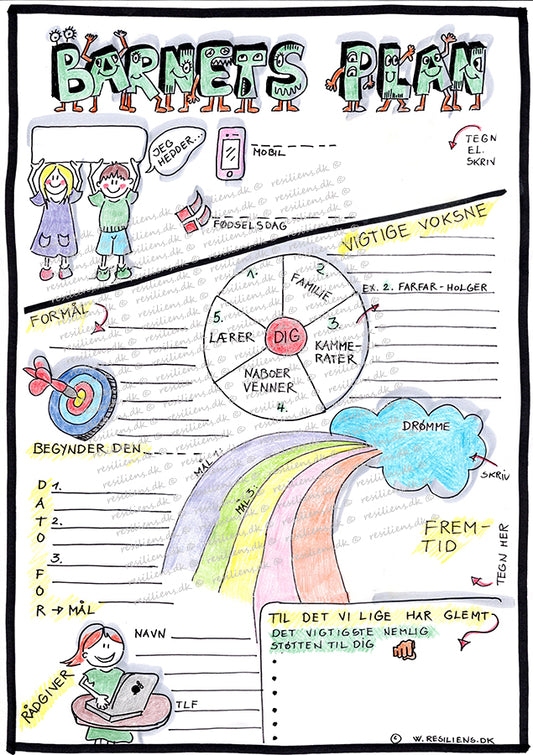 BARNETS PLAN
JEG
HEDDER...
MOBIL
TEGN
EL.
SKRIV
FØDSELSDAG
VIGTIGE VOKSNE
1.
2.
FAMILIE
EX. 2. FARFAR - HOLGER
FORMÅL
5.
LÆRER
DIG
3.
KAMME-
RATER
NABOER
VENNER
4.
DRØMME
BEGYNDER DEN
MÅL 1:
SKRIV
DATO FOR → MÅL
1.
2.
3.
MÅL 3:
FREM-
TID
TEGN HER
TIL DET VI LIGE HAR GLEMT
DET VIGTIGSTE NEMLIG
STØTTEN TIL DIG
RÅDGIVER
NAVN
TLF
© W.RESILIENS.DK
resiliens.dk ©